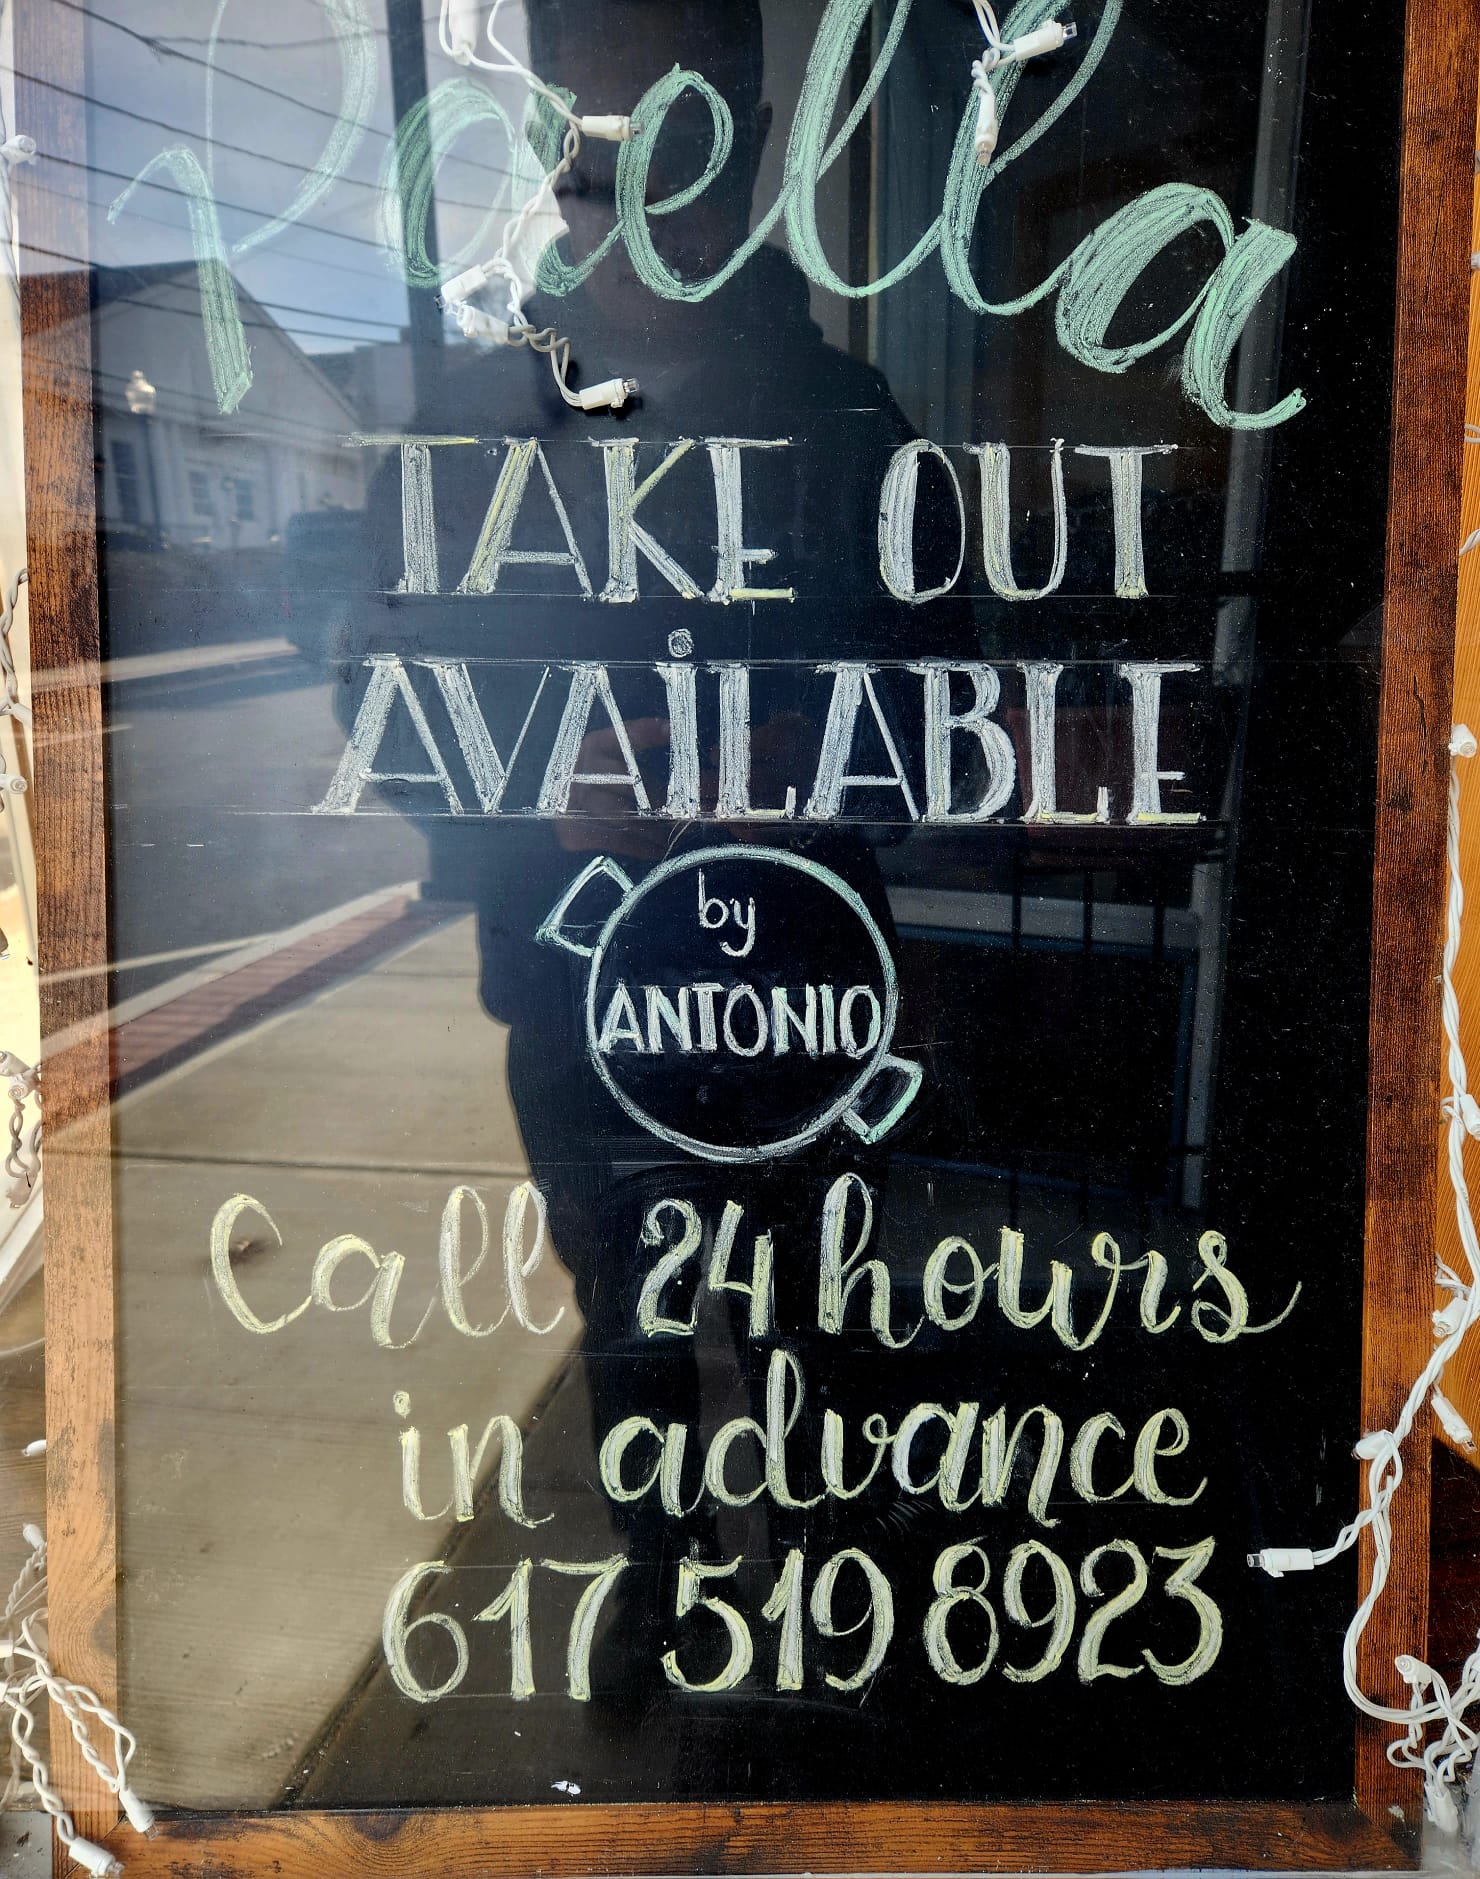 Paella
TAKE OUT
AVAiLABLE
by
ANTONIO
Call 24 hours
in advance
617 519 8923